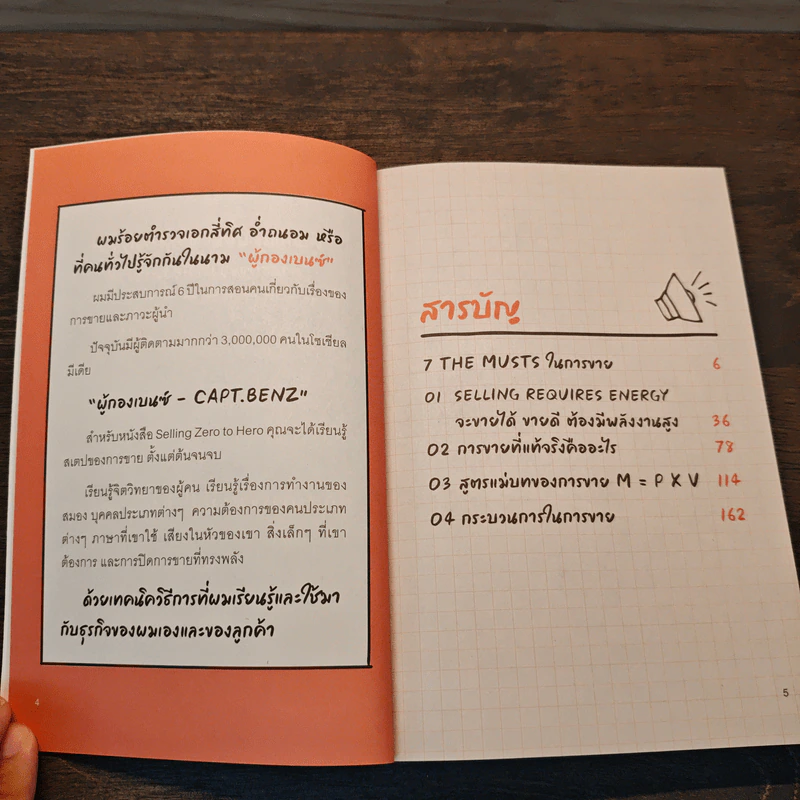 ผมร้อยตำรวจเอกสี่ทิศ อ่ำถนอม หรือ
ที่คนทั่วไปรู้จักกันในนาม "ผู้กองเบนซ์"
ผมมีประสบการณ์ 6 ปีในการสอนคนเกี่ยวกับเรื่องของ
การขายและภาวะผู้นำ
ปัจจุบันมีผู้ติดตามมากกว่า 3,000,000 คนในโซเชียล
มีเดีย
"ผู้กองเบนซ์ - CAPT.BENZ"
สำหรับหนังสือ Selling Zero to Hero คุณจะได้เรียนรู้
สเตปของการขาย ตั้งแต่ต้นจนจบ
เรียนรู้จิตวิทยาของผู้คน เรียนรู้เรื่องการทำงานของ
สมอง บุคคลประเภทต่างๆ ความต้องการของคนประเภท
ต่างๆ ภาษาที่เขาใช้ เสียงในหัวของเขา สิ่งเล็กๆ ที่เขา
ต้องการ และการปิดการขายที่ทรงพลัง
ด้วยเทคนิควิธีการที่ผมเรียนรู้และใช้มา
กับธุรกิจของผมเองและของลูกค้า
4
สารบัญ
7 THE MUSTS ในการขาย 6
01 SELLING REQUIRES ENERGY
จะขายได้ ขายดี ต้องมีพลังงานสูง 36
02 การขายที่แท้จริงคืออะไร 78
03 สูตรแม่บทของการขาย M = P X V 114
04 กระบวนการในการขาย 162
5